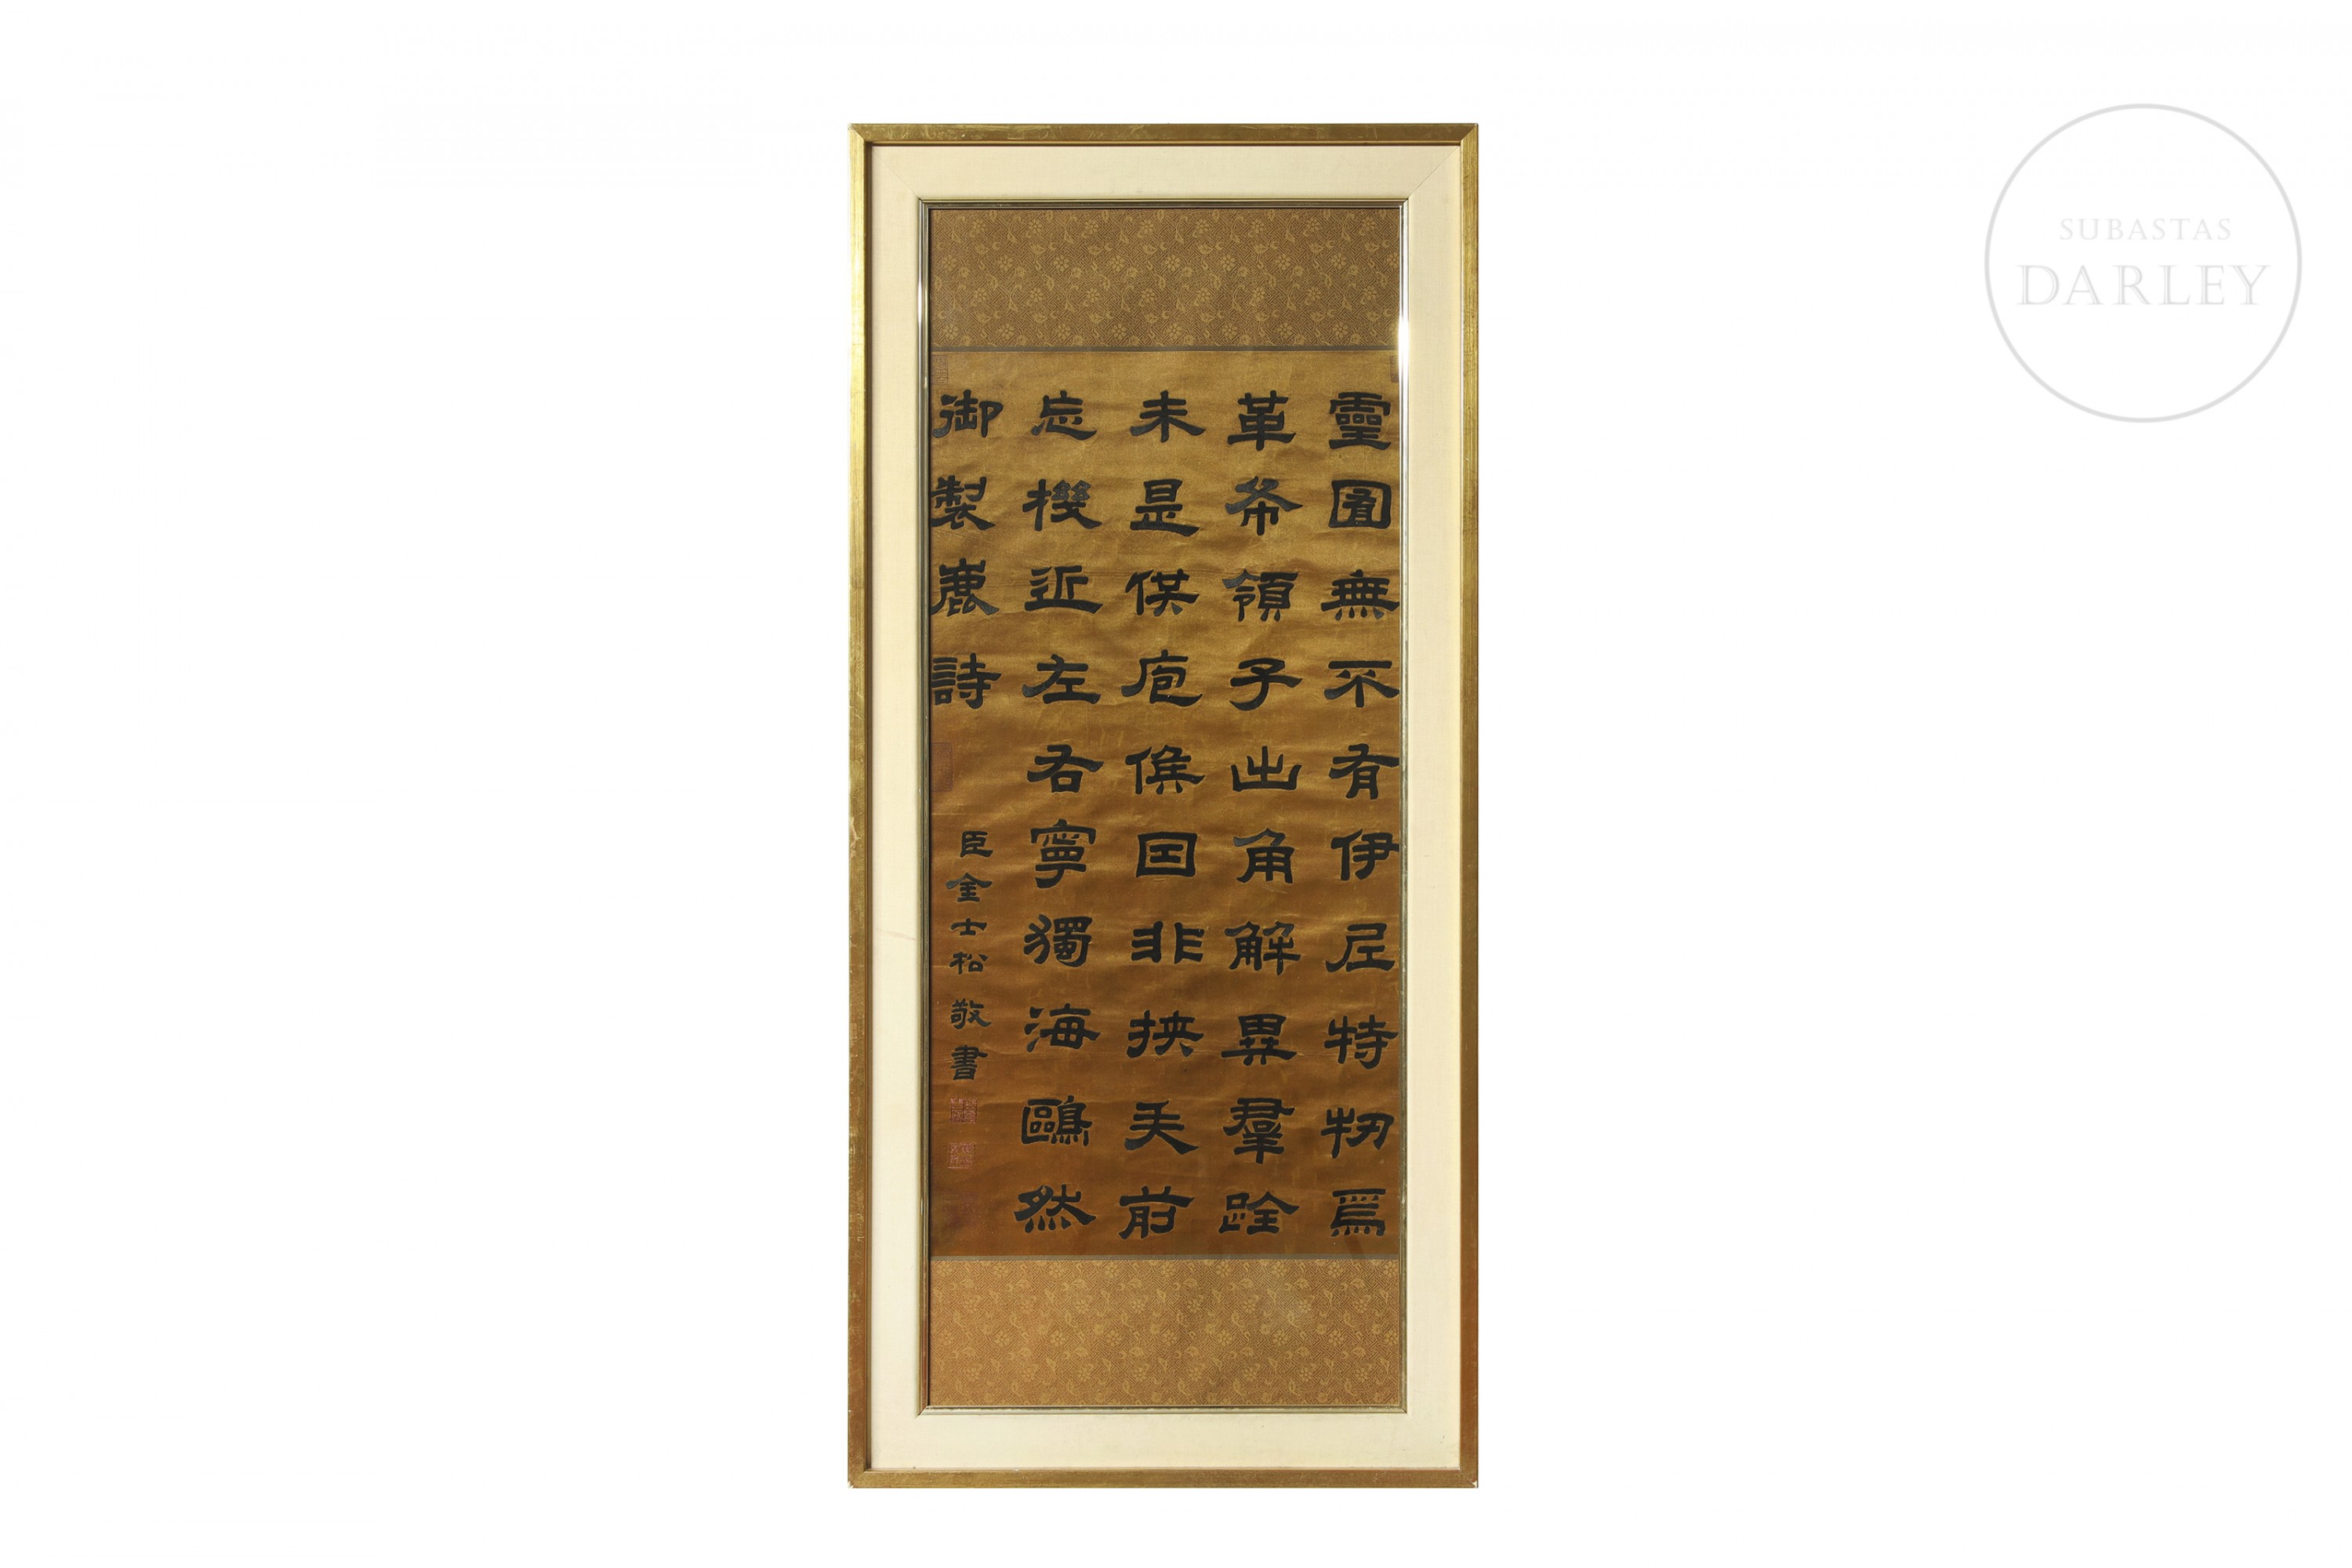 靈囿無不有伊尼特牣焉
革希領子出角解異羣跧
未是供庖候因非挾矢前
忘機近左右寧獨海鷗然
御製鹿詩
臣金士松敬書
SUBASTAS
DARLEY